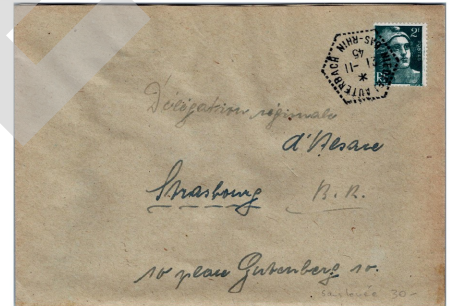 2F
LAUTERBACH
BAS-RHIN
21-11
45
Délégation régionale
d'Alsace
Strasbourg B.R.
10 place Gutenberg 10.
30-